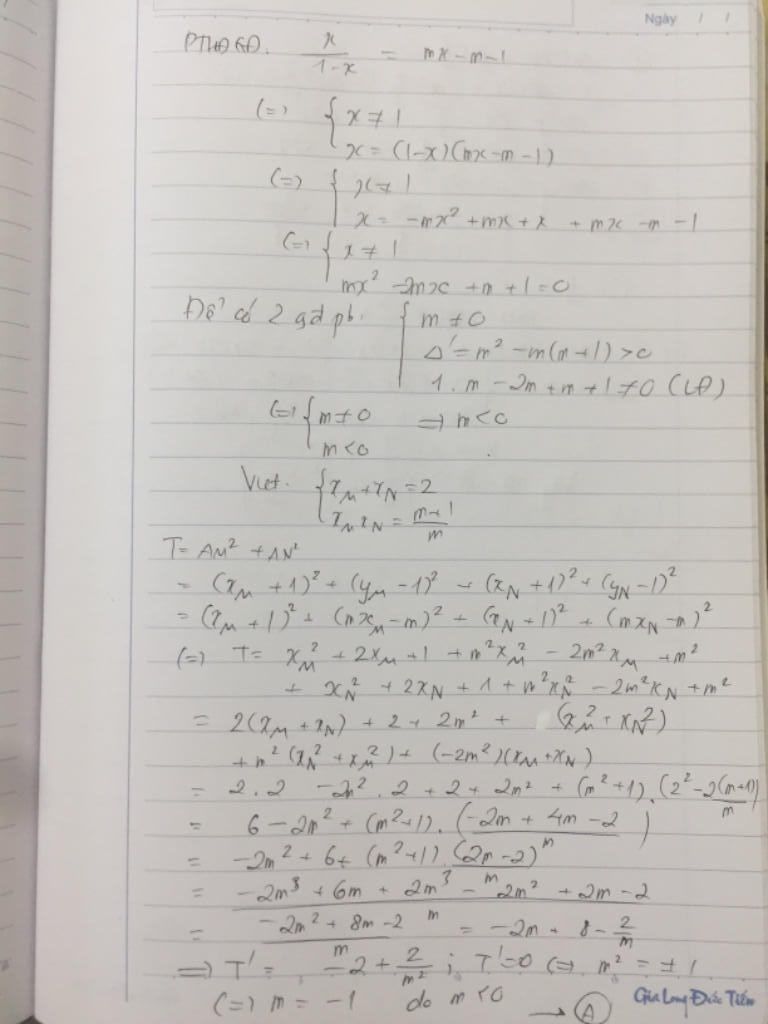 Ngày / /
PTHĐGĐ. x/(1-x) = mx - m - 1
(=) { x ≠ 1
x = (1-x)(mx - m - 1)
(=) { x ≠ 1
x = -mx² + mx + x + mx - m - 1
(=) { x ≠ 1
mx² - 2mx + m + 1 = 0
Để có 2 gđ pb. { m ≠ 0
Δ' = m² - m(m+1) > 0
1.m - 2m + m + 1 ≠ 0 (LĐ)
(=) { m ≠ 0 => m < 0
m < 0
Viet. { x_M + x_N = 2
x_M x_N = (m+1)/m
T = AM² + AN²
= (x_M + 1)² + (y_M - 1)² + (x_N + 1)² + (y_N - 1)²
= (x_M + 1)² + (mx_M - m)² + (x_N + 1)² + (mx_N - m)²
(=) T = x_M² + 2x_M + 1 + m²x_M² - 2m²x_M + m²
+ x_N² + 2x_N + 1 + m²x_N² - 2m²x_N + m²
= 2(x_M + x_N) + 2 + 2m² + (x_M² + x_N²)
+ m²(x_N² + x_M²) + (-2m²)(x_M + x_N)
= 2.2 - 2m².2 + 2 + 2m² + (m²+1).(2² - 2(m+1)/m)
= 6 - 2m² + (m²+1).((-2m + 4m - 2)/m)
= -2m² + 6 + (m²+1).(2m - 2)/m
= (-2m³ + 6m + 2m³ - 2m² + 2m - 2)/m
= (-2m² + 8m - 2)/m = -2m + 8 - 2/m
=> T' = -2 + 2/m² ; T' = 0 (=) m² = ±1
(=) m = -1 do m < 0 → A
Gia Long Đức Tiến